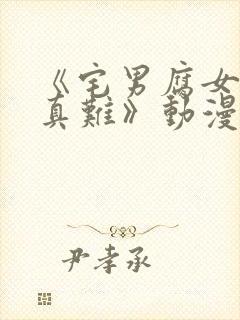 《宅男腐女
真難》動漫
尹孝承